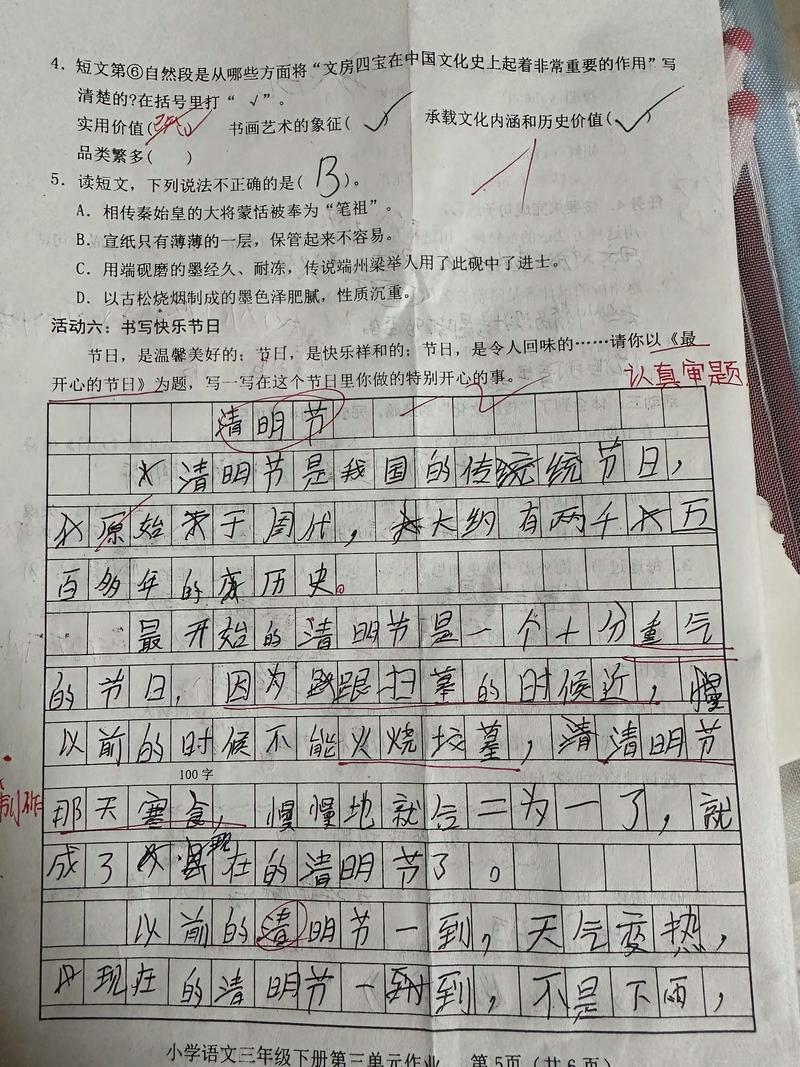 4. 短文第⑥自然段是从哪些方面将“文房四宝在中国文化史上起着非常重要的作用”写
清楚的?在括号里打“ √”。
实用价值( ) 书画艺术的象征( √ ) 承载文化内涵和历史价值( √ )
品类繁多( )
5. 读短文，下列说法不正确的是( B )。
A. 相传秦始皇的大将蒙恬被奉为“笔祖”。
B. 宣纸只有薄薄的一层，保管起来不容易。
C. 用端砚磨的墨经久、耐冻，传说端州梁举人用了此砚中了进士。
D. 以古松烧烟制成的墨色泽肥腻，性质沉重。
活动六：书写快乐节日
节日，是温馨美好的；节日，是快乐祥和的；节日，是令人回味的……请你以《最
开心的节日》为题，写一写在这个节日里你做的特别开心的事。
认真审题
清明节
清明节是我国的传统节日，
原始于周代，大约有两千五
百多年的历史。
最开始的清明节是一个十分重气
的节日，因为跟扫墓的时候近，慢
以前的时候不能火烧坟墓，清明节
100字
那天寒食，慢慢地就合二为一了，就
成了现在的清明节了。
以前的清明节一到，天气变热，
现在的清明节一到，不是下雨，
小学语文三年级下册第三单元作业 第5页（共6页）